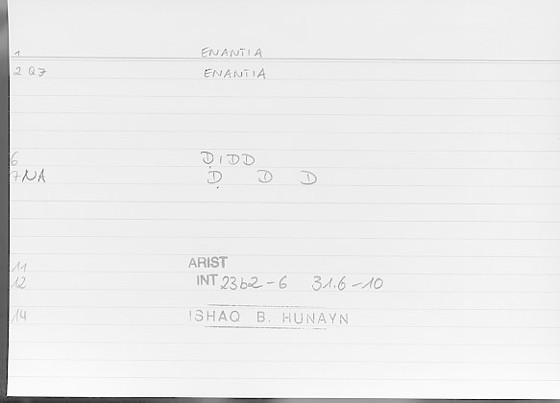 1 ENANTIA
2 Q7 ENANTIA
6 ḌIDD
7 NA Ḍ D D
11 ARIST
12 INT 23b2-6 31.6-10
14 ISHAQ B. HUNAYN